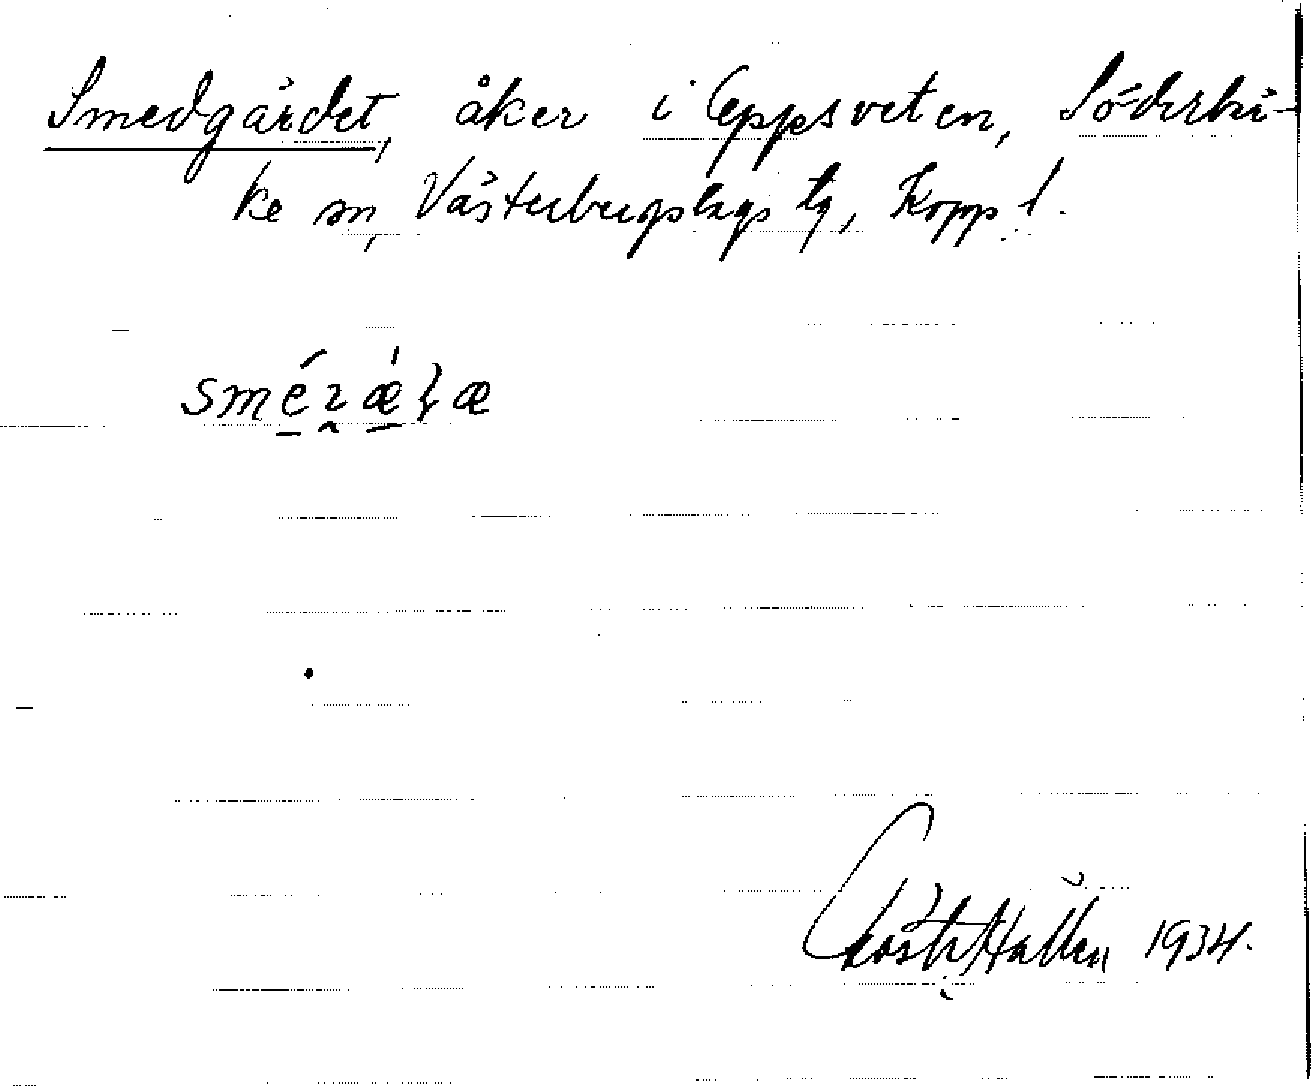 Smedgärdet, åker i Eppsveten, Söderbär-
ke sn, Västerbergslags tg, Kopp. l.
Gösta Hallén 1934.